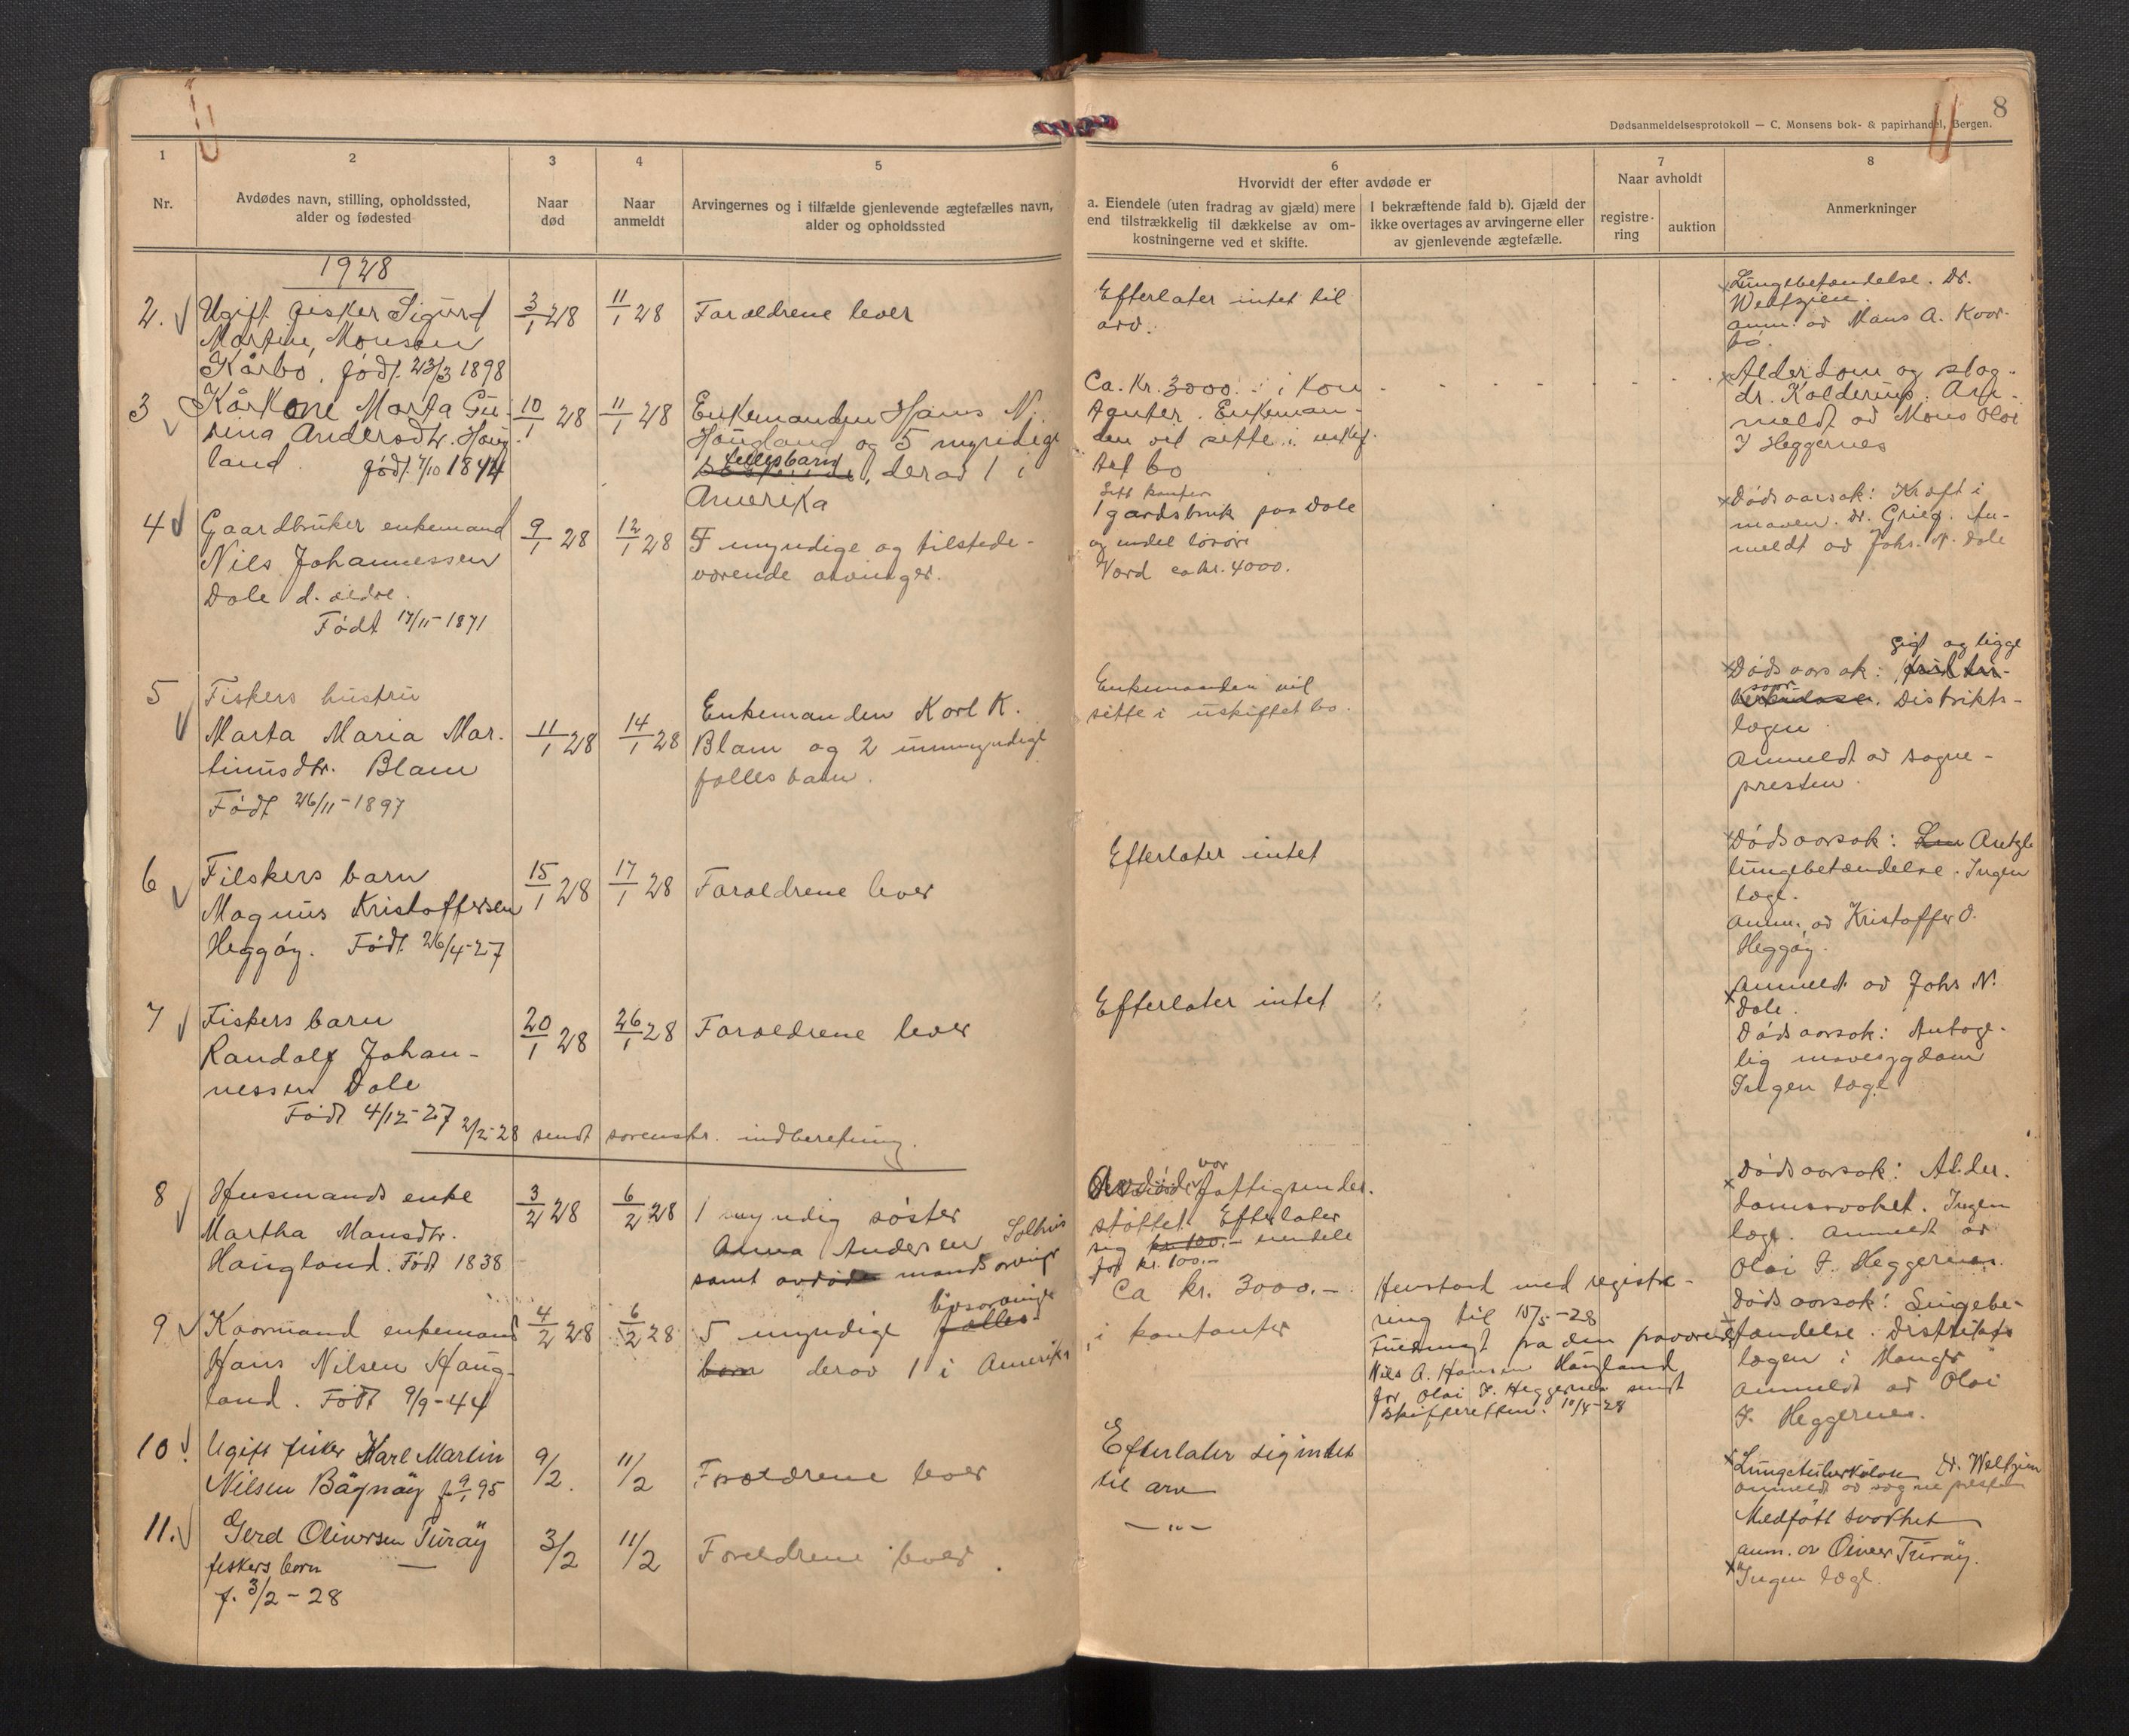 8
Dødsanmeldelsesprotokoll — C. Monsens bok- & papirhandel, Bergen.
1
2
3
4
5
6
7
8
Nr.
Avdødes navn, stilling, opholdssted,
alder og fødested
Naar
død
Naar
anmeldt
Arvingernes og i tilfælde gjenlevende ægtefælles navn,
alder og opholdssted
Hvorvidt der efter avdøde er
a. Eiendele (uten fradrag av gjæld) mere
end tilstrækkelig til dækkelse av om-
kostningerne ved et skifte.
I bekræftende fald b). Gjæld der
ikke overtages av arvingerne eller
av gjenlevende ægtefælle.
Naar avholdt
registre-
ring
auktion
Anmerkninger
1928
2.
Ugift fisker Sigurd
Martin Monsen
Kårbø. født 23/3 1898
3/1 28
11/1 28
Foræeldrene lever
Efterlater intet til
arv.
Lungebetændelse. Dr.
Weltzien.
anm. av Mons A. Kvor-
bø.
3
Kårkone Marta Gu-
rina Andersdtr. Haug-
land. født 7/10 1844
10/1 28
11/1 28
Enkemanden Hans N.
Haugland og 5 myndige
fellesbarn, derav 1 i
Amerika
Ca. Kr. 3000.- i kon-
tanter. Enkeman-
den vil sitte i uskif-
tet bo
Alderdom og slag.
dr. Kolderup. An-
meldt av Mons Olai
J Heggernes
4
Gaardbruker enkemand
Nils Johannessen
Dale d. ældre.
Født 17/11-1871
9/1 28
12/1 28
5 myndige og tilstede-
værende arvinger.
1 gardsbruk paa Dale
og endel løsøre
Verd ca kr. 4000.
Dødsaarsak: Kræft i
maven. Dr. Grieg. An-
meldt av Johs. N. Dale
5
Fiskers hustru
Marta Maria Mar-
tinusdtr. Blom
Født 26/11-1897
11/1 28
14/1 28
Enkemanden Karl K.
Blom og 2 umyndige
felles barn.
Enkemanden vil
sitte i uskiftet bo.
gigt og ligge
Dødsaarsak:
saar. Distrikts-
lægen.
Anmeldt av sogne-
presten.
6
Filskers barn
Magnus Kristoffersen
Heggøy. Født 26/4-27
15/1 28
17/1 28
Foræeldrene lever
Efterlater intet
Dødsaarsak: Lun Antgl
lungebetændelse. Ingen
læge.
anm. av Kristoffer O.
Heggøy.
7
Fiskers barn
Randolf Johan-
nessen Dale
Født 4/12-27
20/1 28
26/1 28
Foræeldrene lever
Efterlater intet
Anmeldt av Johs N.
Dale.
Dødsaarsak: Antage-
lig mavesygdom
Ingen læge
2/2-28 sendt sorenskr. indberetning.
8
Husmands enke
Martha Monsdtr.
Haugland. Født 1838
3/2 28
6/2 28
1 myndig søster
Anna Andersen Solhus
samt avdøde mands arvinge
Avdøde var fattigunder-
støttet. Efterlater
sig kr 100.- eiendele
for kr. 100.-
Dødsaarsak: Alder-
domssvakhet. Ingen
læge. Anmeldt av
Olai J. Heggernes.
9
Kaarmand enkemand
Hans Nilsen Haug-
land. Født 9/9-44
4/2 28
6/2 28
livsarvinge
5 myndige felles-
barn derav 1 i Amerika
Ca kr. 3000.-
i kontanter
Henstand med registre-
ring til 15/5-28
Fuldmagt fra den
Nils A. Hansen Haugland
for Olai J. Heggernes sendt
skifteretten. 10/4-28
Dødsaarsak: Lungebe-
tændelse. Distrikts
lægen i Manger
Anmeldt av Olai
J. Heggernes.
10.
Ugift fisker Karl Martin
Nilsen Bågnøy f. 9/1 95
9/2.
11/2
Foræeldrene lever
Efterlater sig intet
til arv
Lungetuberkulose Dr. Weltzien
anmeldt av sogneprsten
11.
Gerd Olinersen Turøy
fiskers barn
f. 3/2-28
3/2
11/2
Foreldrene lever.
—"—
Medfött svakhet
anm. av Oliver Turøy.
Ingen læge.